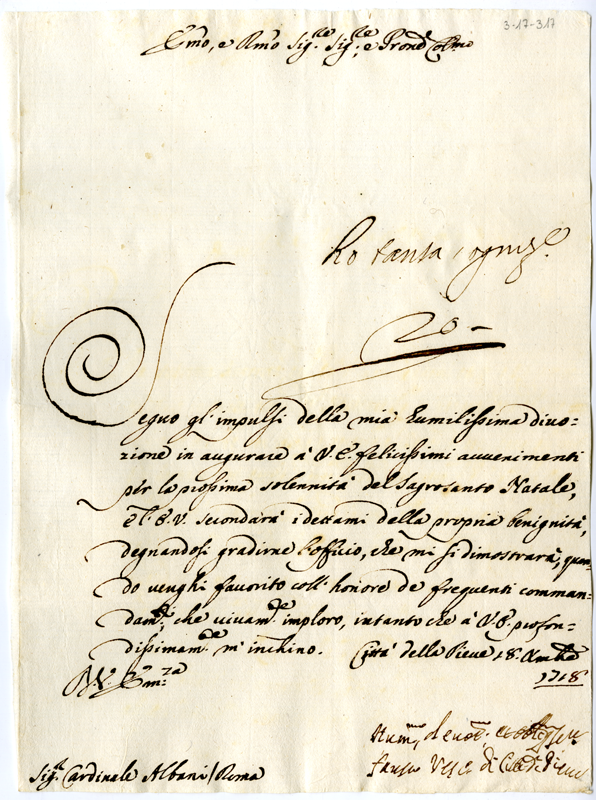 3-17-317
Emo, e Rmo Sig.re Sig.re, e Prone Colmo
Ho tanta
20 -
Seguo gl'impulsi della mia humilissima divo=
zione in augurare à V.E. felicissimi avvenimenti
per la prossima solennità del Sagrosanto Natale,
E l'E.V. secondarà i dettami della propria benignità,
degnandosi gradirne l'officio, che mi si dimostrarà, quan=
do venghi favorito coll'honore de frequenti comman=
dam.ti, che vivam.te imploro, intanto che à V.E. profon=
dissimam.te m'inchino. Città della Pieve 18. Xmbre
1718
V. Em.za
Hum.mo devot.
Fausto Vesc.o di Città di
Sig.r Cardinale Albani / Roma